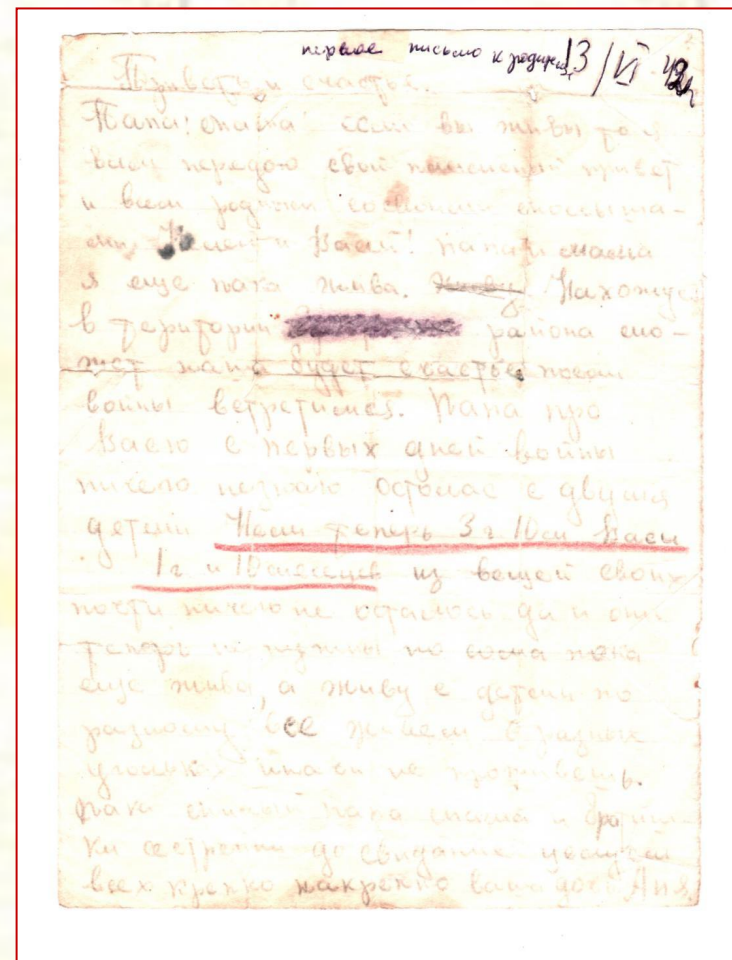 первое письмо к родител. 13/VI 42г
счастье.
Папа! мама! если вы живы то я
вам передаю свой пламенный привет
и всем родным
и Васей! папа и мама
я еще пока жива. Живу Нахожус
в територии района смо-
жет папа будет счастье после
войны встретимся. Папа про
Васю с первых дней войны
ничего незнаю осталас с двумя
детьми теперь 3 г 10 м Васи
1 г и 10 месяцев из вещей своих
почти ничего не осталось да и они
теперь не нужны но сама пока
еще жива, а живу с детьми по
разному все живем в разных
не проживешь.
Пока милый папа мама и братиш-
ки сестренки до свидание целую
всех крепко накрепко ваша доч Аня